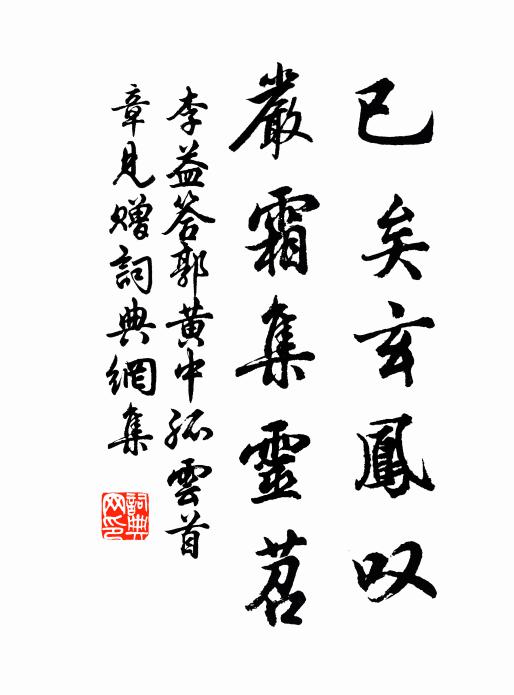 已矣玄鳳叹
嚴霜集靈苕
李益答郭黄中孤雲首
章見贈詞典網集
詞典网印